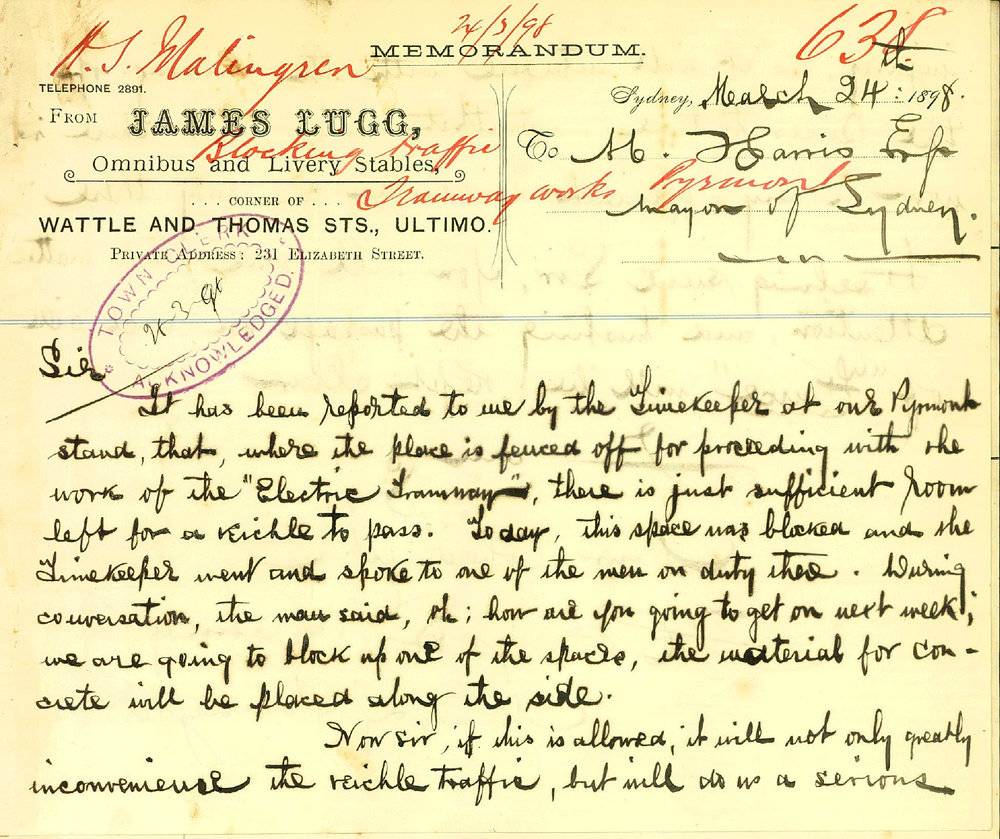 24/3/98
H. S. Malingren
MEMORANDUM.
638
TELEPHONE 2891.
Sydney, March 24th: 1898.
FROM JAMES LUGG,
To M. Harris Esq
Blocking traffic
Omnibus and Livery Stables,
Tramway works Pyrmont
Mayor of Sydney.
... CORNER OF ...
WATTLE AND THOMAS STS., ULTIMO.
PRIVATE ADDRESS: 231 ELIZABETH STREET.
TOWN CLERK
ACKNOWLEDGED.
Sir
It has been reported to me by the Timekeeper at our Pyrmont
stand, that, where the place is fenced off for proceeding with the
work of the "Electric Tramway", there is just sufficient room
left for a veichle to pass. Today, this space was blocked and the
Timekeeper went and spoke to one of the men on duty there. During
conversation, the man said, oh; how are you going to get on next week;
we are going to block up one of the spaces, the material for con-
crete will be placed along the side.
Now sir, if this is allowed, it will not only greatly
inconvenience the veichle traffic, but will do us a serious